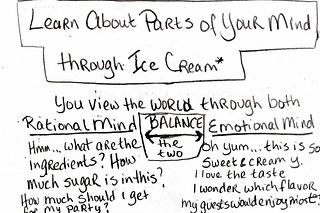 Learn About Parts of Your Mind
through Ice Cream*
You view the world through both
Rational Mind
BALANCE
the
two
Emotional Mind
Hmm... what are the
ingredients? How
much sugar is in this?
How much should I get
for my party?
Oh yum... this is so
sweet & creamy.
I love the taste
I wonder which flavor
my guests would enjoy most?